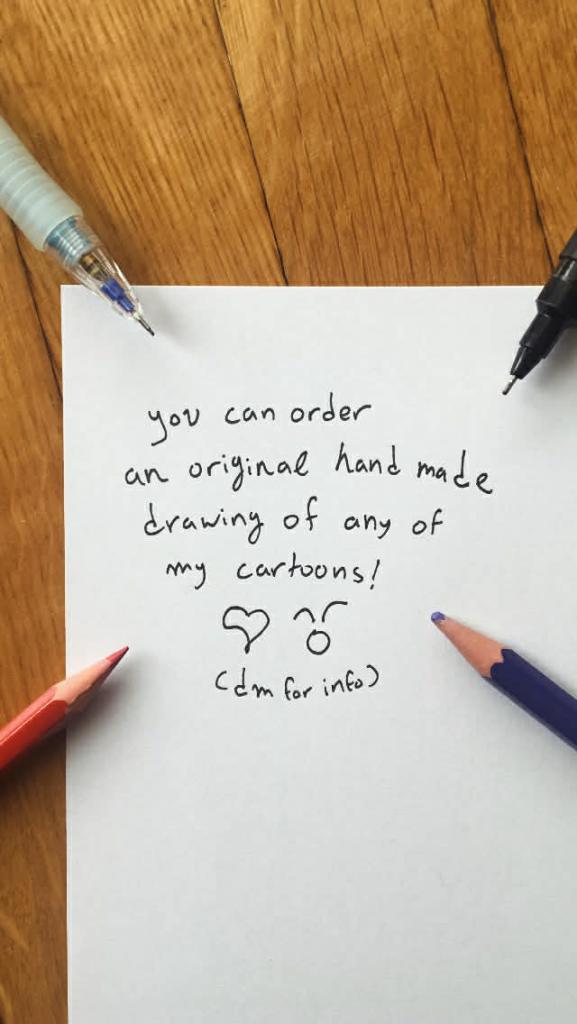 you can order
an original hand made
drawing of any of
my cartoons!
(dm for info)